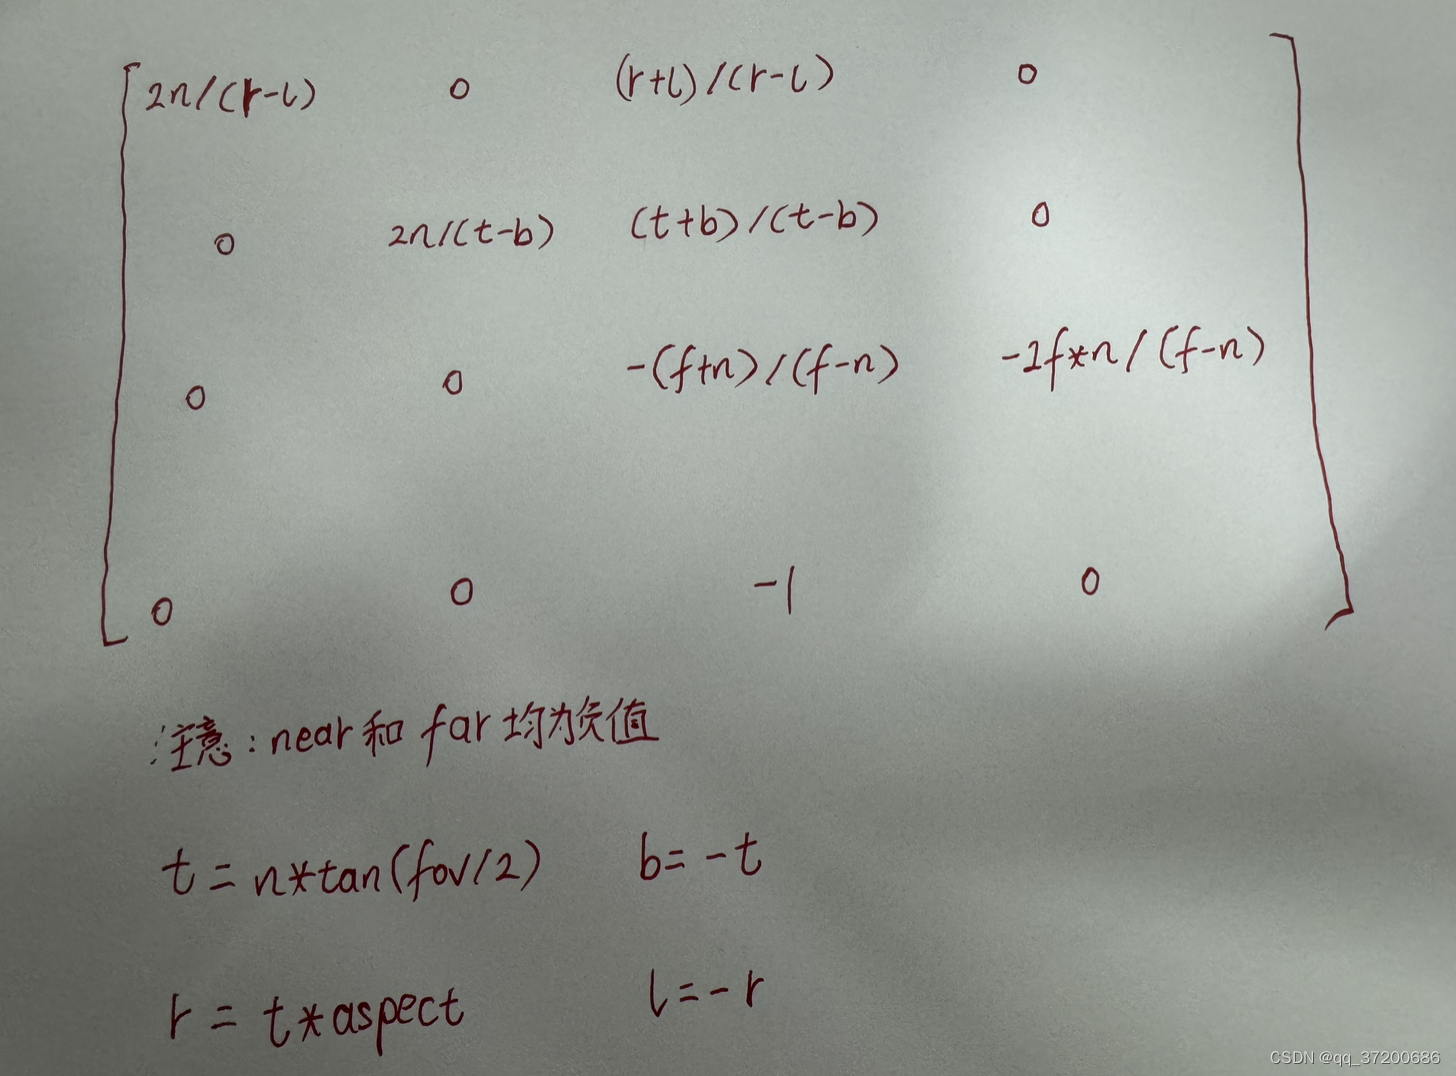 2n/(r-l) 0 (r+l)/(r-l) 0
0 2n/(t-b) (t+b)/(t-b) 0
0 0 -(f+n)/(f-n) -2f*n/(f-n)
0 0 -1 0
注意:near和far均为负值
t=n*tan(fov/2) b=-t
r=t*aspect l=-r
CSDN @qq_37200686